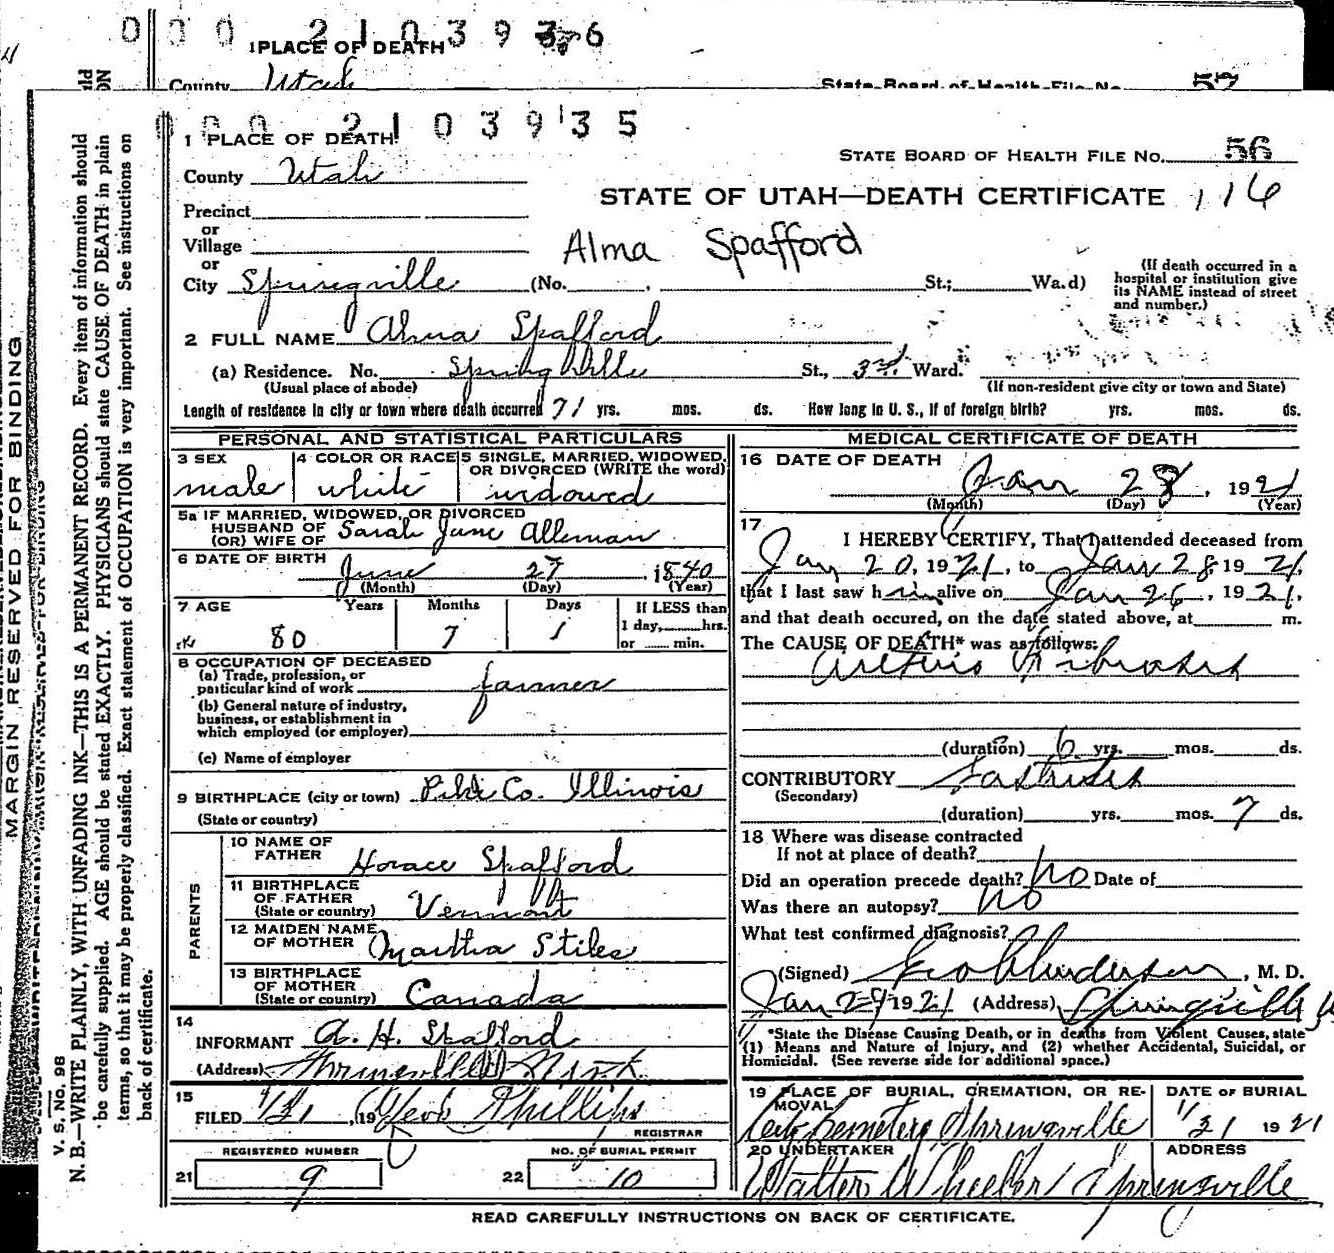 0 0 0 2 1 0 3 9 3 6
1 PLACE OF DEATH
County Utah State Board of Health File No. 57
0 0 0 2 1 0 3 9 3 5
1 PLACE OF DEATH
STATE BOARD OF HEALTH FILE NO. 56
County Utah
STATE OF UTAH—DEATH CERTIFICATE 116
Precinct
or
Village
Alma Spafford
or
City Springville (No. , St.; Wa.d)
(If death occurred in a
hospital or institution give
its NAME instead of street
and number.)
2 FULL NAME Alma Spafford
(a) Residence. No. Springville St., 3rd. Ward.
(Usual place of abode) (If non-resident give city or town and State)
Length of residence in city or town where death occurred 71 yrs. mos. ds. How long in U. S., if of foreign birth? yrs. mos. ds.
PERSONAL AND STATISTICAL PARTICULARS
3 SEX 4 COLOR OR RACE 5 SINGLE, MARRIED, WIDOWED,
OR DIVORCED (WRITE the word)
male white widowed
5a IF MARRIED, WIDOWED, OR DIVORCED
HUSBAND OF
(OR) WIFE OF Sarah Jane Alleman
6 DATE OF BIRTH
June 27, 1840
(Month) (Day) (Year)
7 AGE Years Months Days If LESS than
1 day, hrs.
80 7 1 or min.
8 OCCUPATION OF DECEASED
(a) Trade, profession, or
particular kind of work farmer
(b) General nature of industry,
business, or establishment in
which employed (or employer)
(c) Name of employer
9 BIRTHPLACE (city or town) Pike Co. Illinois
(State or country)
PARENTS
10 NAME OF
FATHER Horace Spafford
11 BIRTHPLACE
OF FATHER
(State or country) Vermont
12 MAIDEN NAME
OF MOTHER Martha Stiles
13 BIRTHPLACE
OF MOTHER
(State or country) Canada
14
INFORMANT A. H. Spafford
(Address) Springville Utah
15
FILED 1/31, 19 Geo Phillips
REGISTRAR
REGISTERED NUMBER NO. OF BURIAL PERMIT
21 9 22 10
MEDICAL CERTIFICATE OF DEATH
16 DATE OF DEATH
Jan 28, 1921
(Month) (Day) (Year)
17
I HEREBY CERTIFY, That I attended deceased from
Jan 20, 1921, to Jan 28 1921,
that I last saw him alive on Jan 26, 1921,
and that death occured, on the date stated above, at m.
The CAUSE OF DEATH* was as follows:
(duration) 6 yrs. mos. ds.
CONTRIBUTORY Gastritis
(Secondary)
(duration) yrs. mos. 7 ds.
18 Where was disease contracted
If not at place of death?
Did an operation precede death? No Date of
Was there an autopsy? No
What test confirmed diagnosis?
(Signed) Geo Anderson, M. D.
Jan 29 1921 (Address) Springville U
*State the Disease Causing Death, or in deaths from Violent Causes, state
(1) Means and Nature of Injury, and (2) whether Accidental, Suicidal, or
Homicidal. (See reverse side for additional space.)
19 PLACE OF BURIAL, CREMATION, OR RE-
MOVAL DATE OF BURIAL
City Cemetery Springville 1/31 1921
20 UNDERTAKER ADDRESS
Walter Wheeler Springville
READ CAREFULLY INSTRUCTIONS ON BACK OF CERTIFICATE.
MARGIN RESERVED FOR BINDING
V. S. No. 98
N. B.—WRITE PLAINLY, WITH UNFADING INK—THIS IS A PERMANENT RECORD. Every item of information should
be carefully supplied. AGE should be stated EXACTLY. PHYSICIANS should state CAUSE OF DEATH in plain
terms, so that it may be properly classified. Exact statement of OCCUPATION is very important. See instructions on
back of certificate.